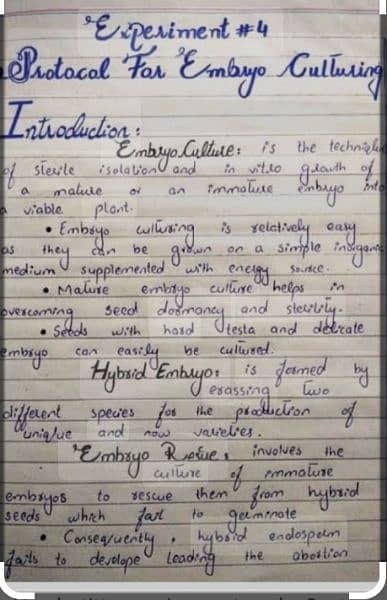 Experiment #4
Protocol For Embryo Culturing
Introduction:
Embryo Culture: is the technique
of sterile isolation and in vitro growth of
a mature or an immature embryo into
a viable plant.
• Embryo culturing is relatively easy
as they can be grown on a simple inorganic
medium supplemented with energy source.
• Mature embryo culture helps in
overcoming seed dormancy and sterility.
• Seeds with hard testa and delicate
embryo can easily be cultured.
Hybrid Embryo: is formed by
crossing two
different species for the production of
unique and new varieties.
Embryo Resue: involves the
culture of immature
embryos to rescue them from hybrid
seeds which fail to germinate
• Consequently, hybrid endosperm
fails to develope leading the abortion